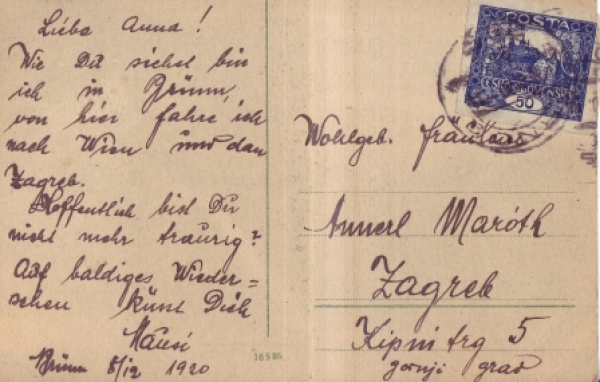 Liebe Anna!
Wie Du siehst bin
ich in Brünn,
von hier fahre ich
nach Wien und dan
Zagreb.
Hoffentlich bist Du
nicht mehr traurig?
Auf baldiges Wieder=
sehen küsst Dich
Mausi
Brünn 8/12 1920
16586
POSTA
ČESKO-SLOVENSKÁ
50
Wohlgeb. Fräulein
Annerl Maróth
Zagreb
Kipni trg 5
gornji grad